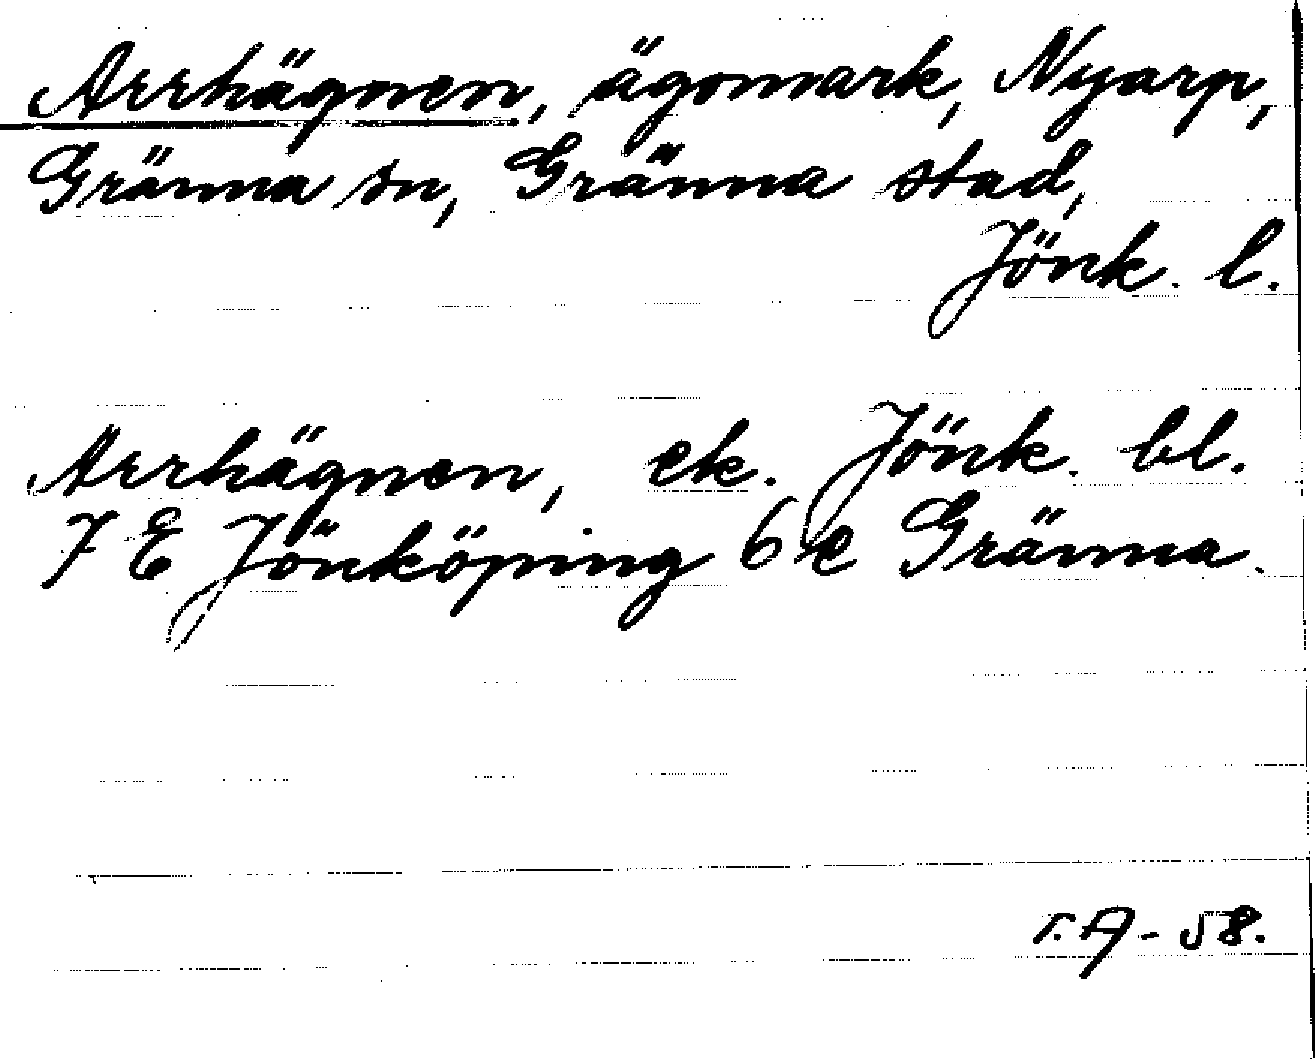 Arrhägnen, ägomark, Nyarp,
Gränna sn, Gränna stad,
Jönk. l.
Arrhägnen, ek. Jönk. bl.
7 E Jönköping 6 e Gränna.
T.A-58.